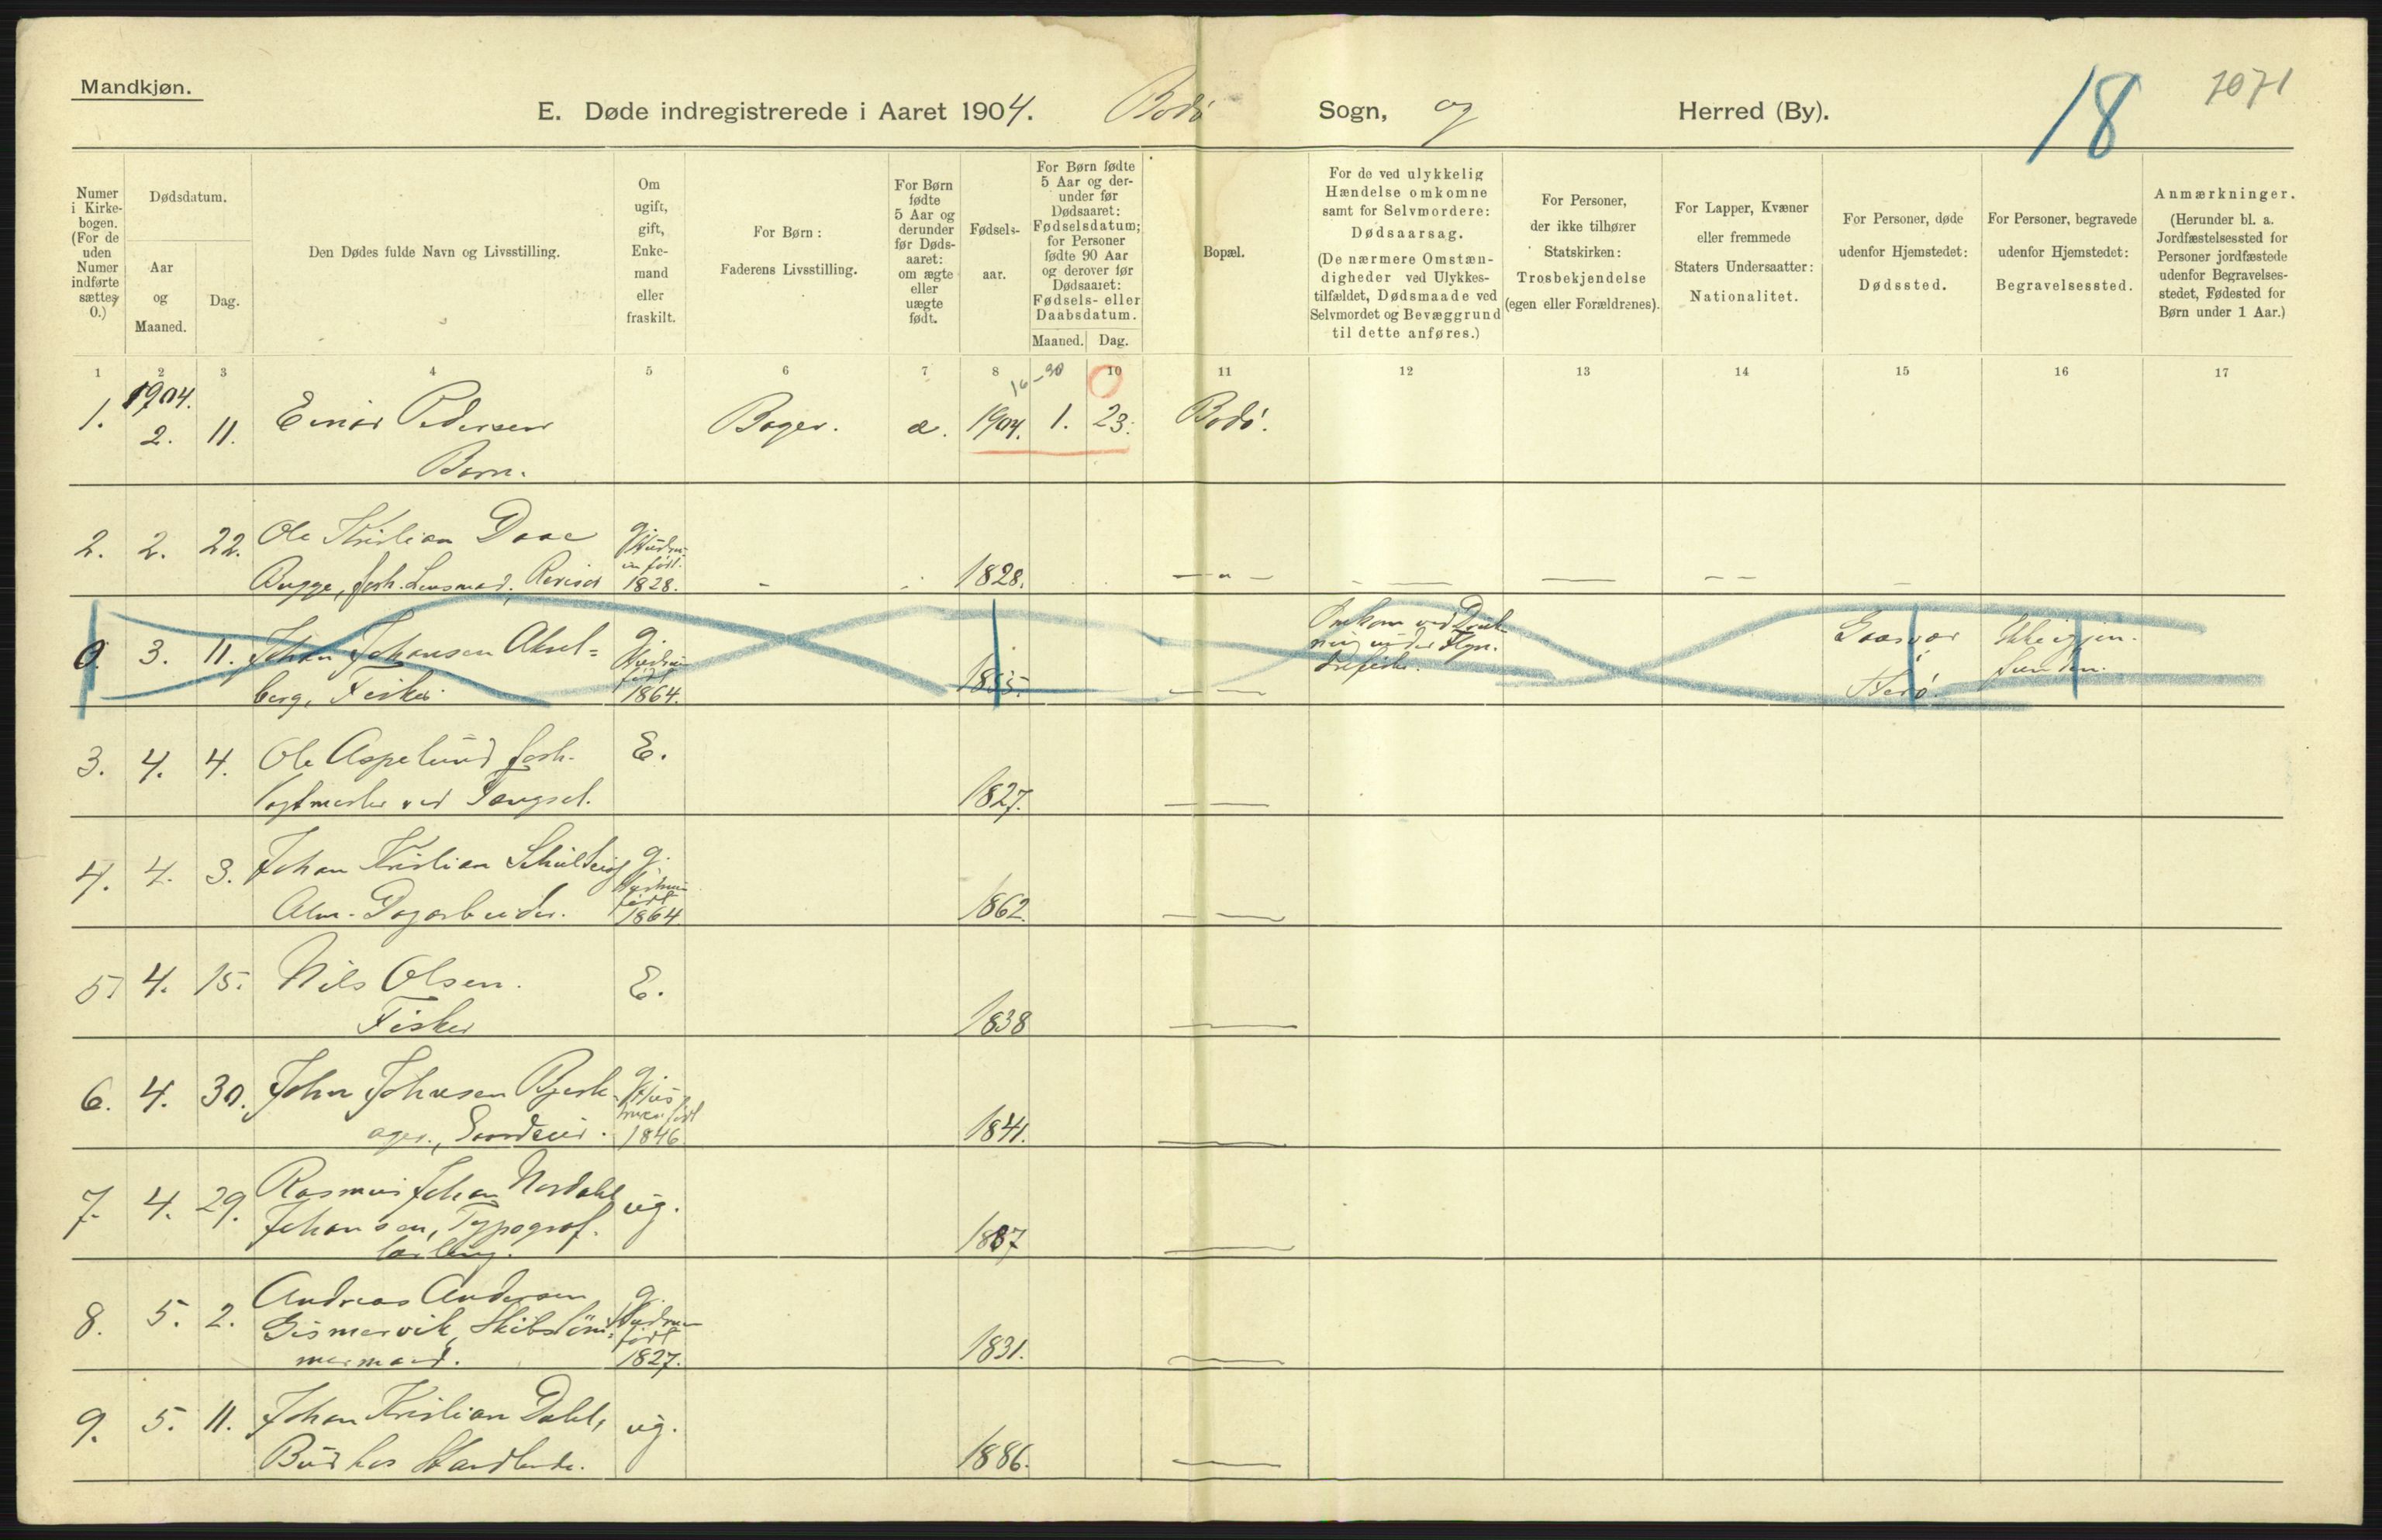 Mandkjøn.
E. Døde indregistrerede i Aaret 1904. Bodø Sogn, og Herred (By).
18
1071
Numer i Kirkebogen. (For de uden Numer indførte sættes 0.)
Dødsdatum.
Aar og Maaned.
Dag.
Den Dødes fulde Navn og Livsstilling.
Om ugift, gift, Enkemand eller fraskilt.
For Børn: Faderens Livsstilling.
For Børn fødte 5 Aar og derunder før Dødsaaret: om ægte eller uægte født.
Fødselsaar.
For Børn fødte 5 Aar og derunder før Dødsaaret: Fødselsdatum; for Personer fødte 90 Aar og derover før Dødsaaret: Fødsels- eller Daabsdatum.
Maaned. Dag.
Bopæl.
For de ved ulykkelig Hændelse omkomne samt for Selvmordere: Dødsaarsag.
(De nærmere Omstændigheder ved Ulykkestilfældet, Dødsmaade ved Selvmordet og Bevæggrund til dette anføres.)
For Personer, der ikke tilhører Statskirken: Trosbekjendelse (egen eller Forældrenes).
For Lapper, Kvæner eller fremmede Staters Undersaatter: Nationalitet.
For Personer, døde udenfor Hjemstedet: Dødssted.
For Personer, begravede udenfor Hjemstedet: Begravelsessted.
Anmærkninger.
(Herunder bl. a. Jordfæstelsessted for Personer jordfæstede udenfor Begravelsesstedet, Fødested for Børn under 1 Aar.)
1 2 3 4 5 6 7 8 9 10 11 12 13 14 15 16 17
1904.
1. 2. 11. Einar Pedersen Bager. æ. 1904. 1. 23. Bodø.
Barn.
2. 2. 22. Ole Kristian Daae g. Hustruen født
Bugge, forh. Lensmand, Revisor 1828. 1828. — " —
0. 3. 11. Johan Johansen Aksel= g. Hustruen født Omkom ved Druk- Gaasvær Ikke igjen-
berg, Fisker. 1864. 1855. — — ning under Herø. funden.
3. 4. 4. Ole Aspelund forh. E.
Vagtmester ved Fængsel. 1827. — —
4. 4. 3. Johan Kristian g. Hustruen født
Alm. Dagarbeider. 1864 1862. — —
5. 4. 15. Nils Olsen. E.
Fisker 1838 —
6. 4. 30. John Johnsen Bjerk- g. Hustruen født
ager., Gaardeier. 1846. 1841. —
7. 4. 29. Rasmus Johan Nordahl ug.
Johansen, Typograf- 1887 —
lærling.
8. 5. 2. Andreas Andersen g. Hustruen født
Gismervik, Skibstøm-
mermand. 1827. 1831. —
9. 5. 11. Johan Kristian Dahl, ug.
Bud hos Handlende. 1886. —